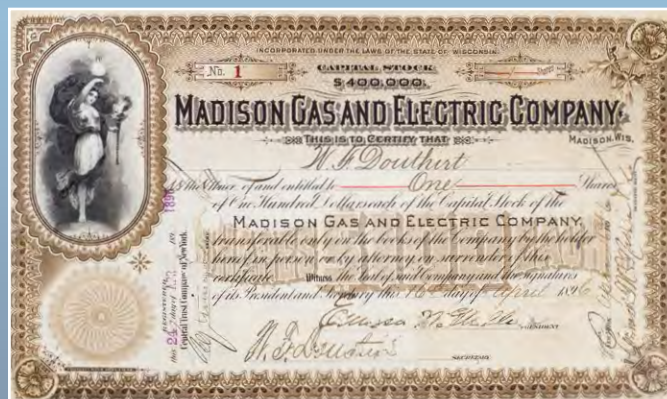 INCORPORATED UNDER THE LAWS OF THE STATE OF WISCONSIN.
No. 1
CAPITAL STOCK
$400,000.
Shares
MADISON GAS AND ELECTRIC COMPANY.
THIS IS TO CERTIFY THAT
MADISON, WIS.
W. F. Douthirt
is the Owner of and entitled to One Shares
of One Hundred Dollars each of the Capital Stock of the
MADISON GAS AND ELECTRIC COMPANY,
transferable only on the books of the Company by the holder
hereof in person or by attorney on surrender of this
certificate. Witness the Seal of said Company and the signatures
of its President and Secretary this 16 day of April 1896
PRESIDENT
SECRETARY
REGISTERED
this 24 day of 189
Central Trust Company of New York